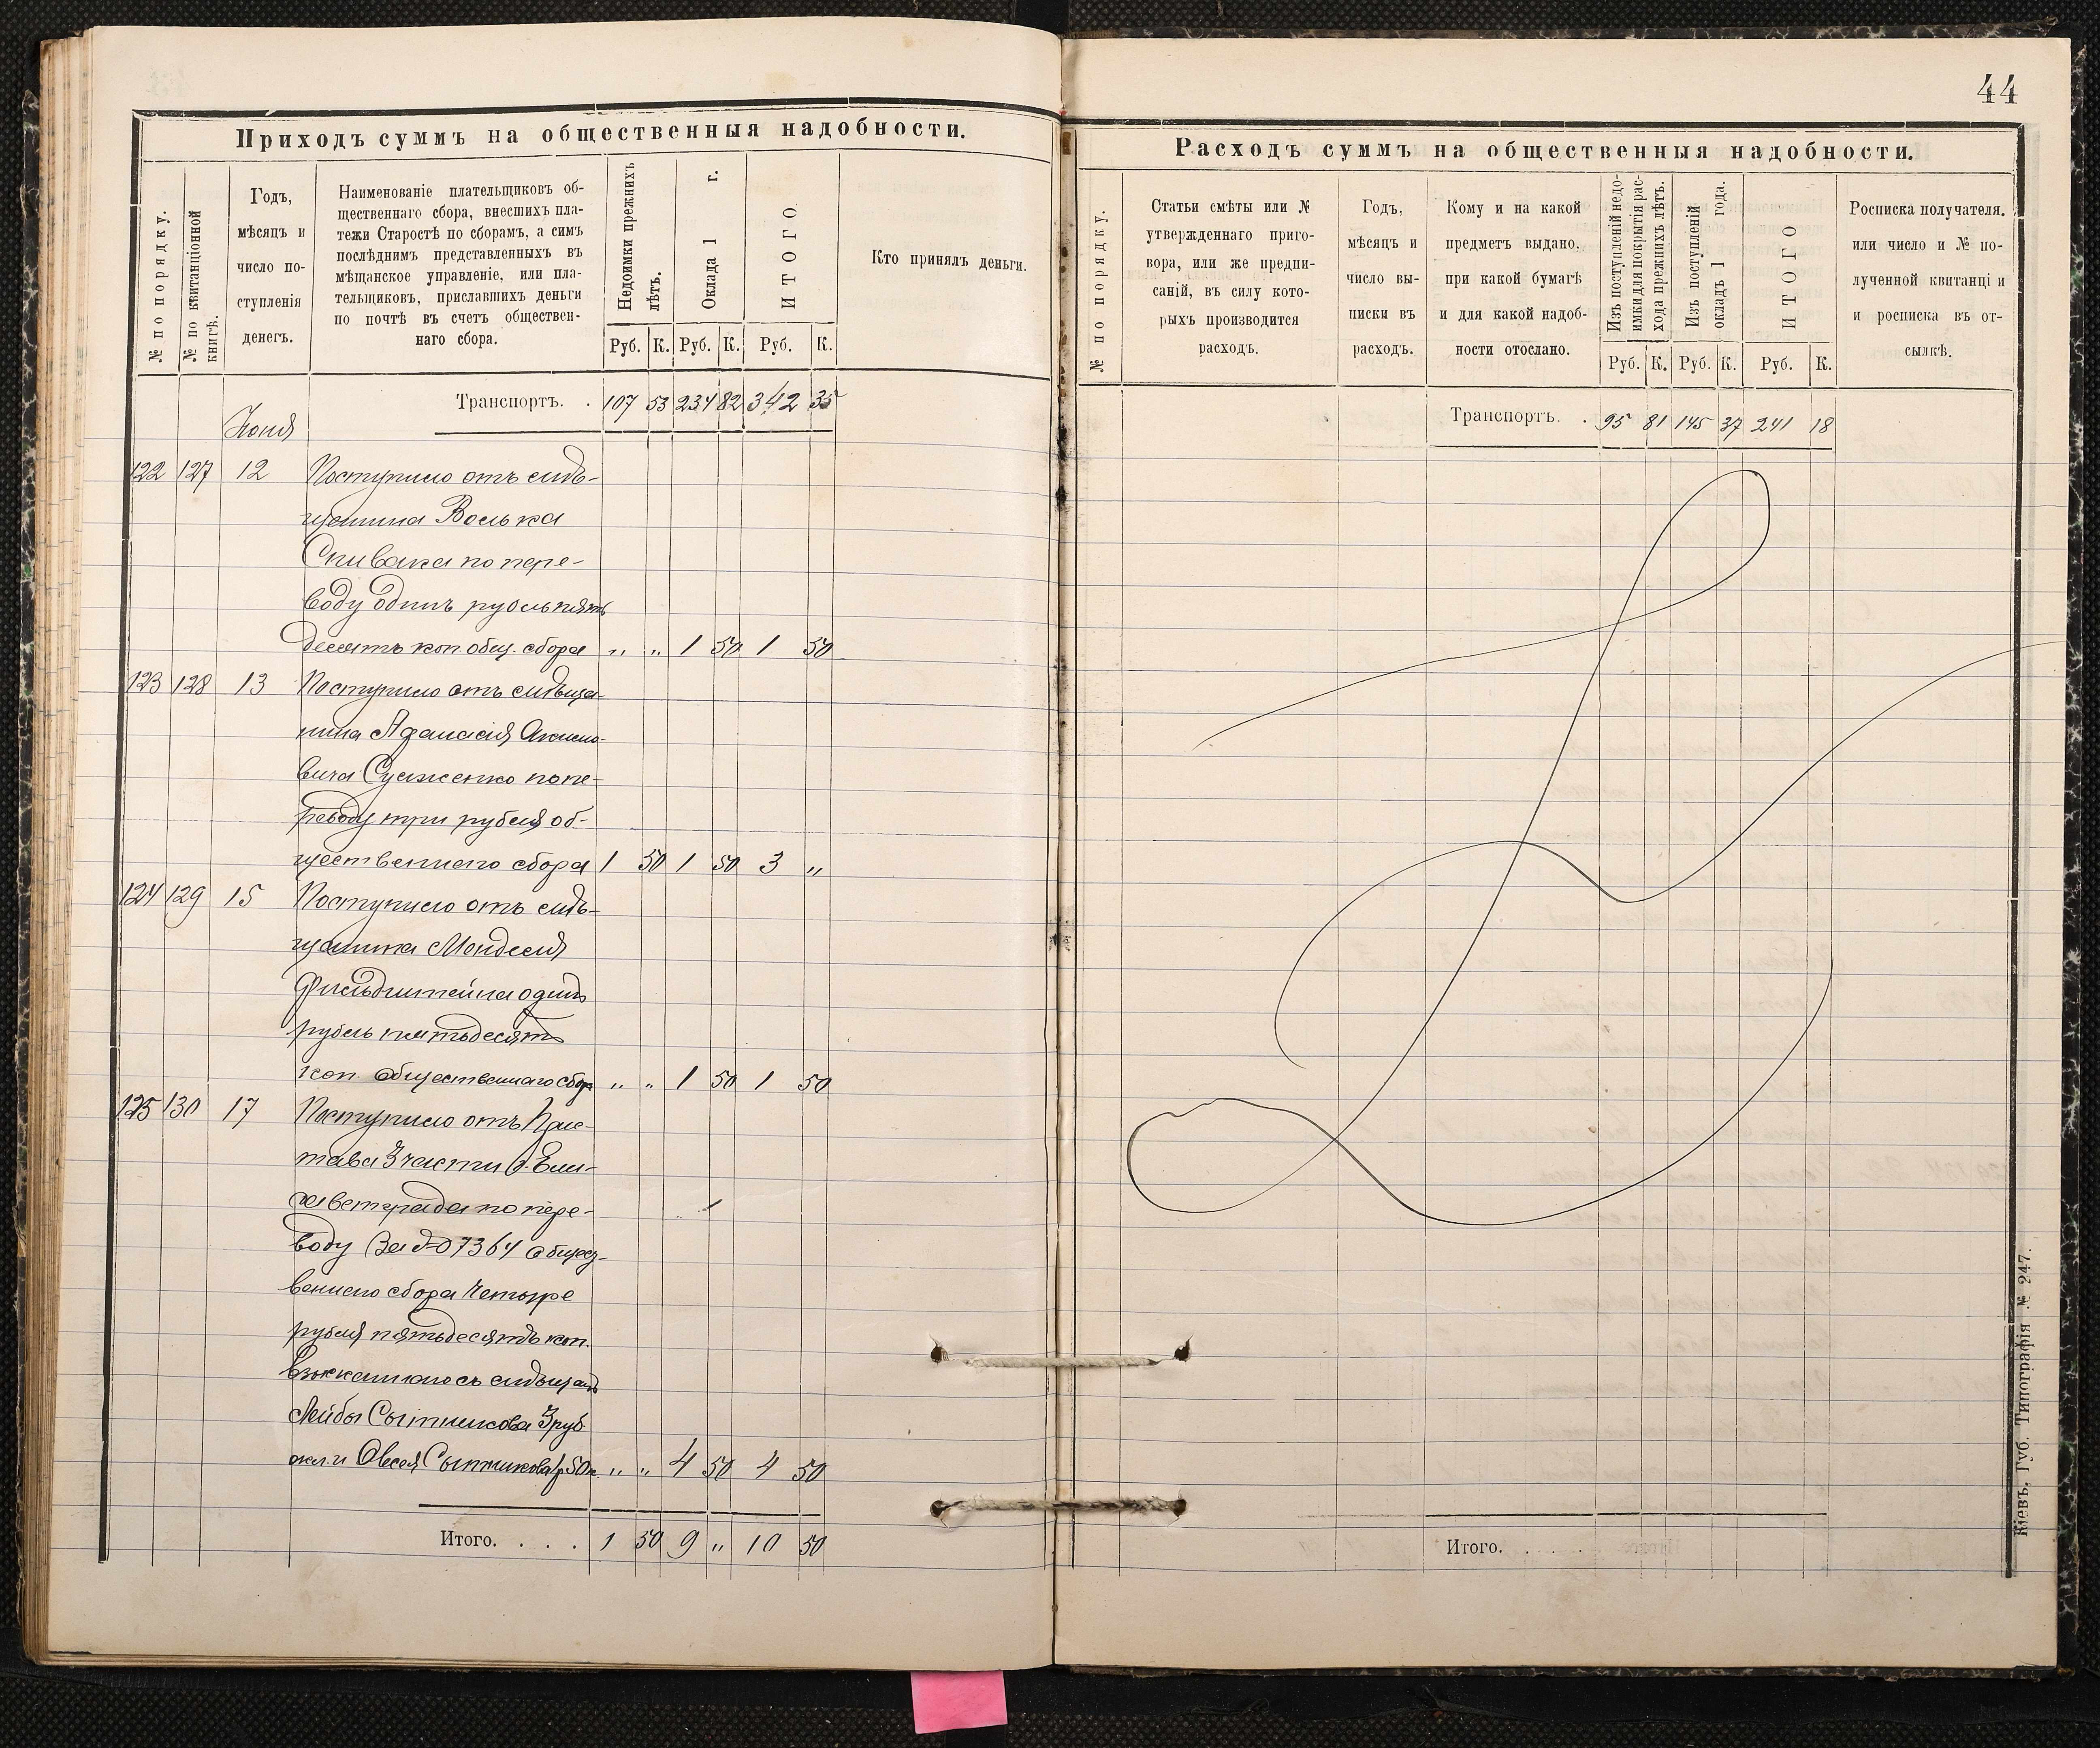 44
Приходъ суммъ на общественныя надобности.
№ по порядку.
№ по квитанціонной
книгѣ.
Годъ,
мѣсяцъ и
число по-
ступленія
денегъ.
Наименованіе плательщиковъ об-
щественнаго сбора, внесшихъ пла-
тежи Старостѣ по сборамъ, а симъ
послѣднимъ представленныхъ въ
мѣщанское управленіе, или пла-
тельщиковъ, приславшихъ деньги
по почтѣ въ счетъ обществен-
наго сбора.
Недоимки прежнихъ
лѣтъ.
Оклада 1 г.
ИТОГО
Кто принялъ деньги.
Руб. К. Руб. К. Руб. К.
Транспортъ. . 107 53 234 82 342 35
Іюня
122 127 12 Поступило отъ мѣ-
щанина Волька
Спивака по пере-
воду одинъ рубль пять
десятъ коп общ. сбора „ „ 1 50 1 50
123 128 13 Поступило отъ мѣща-
нина Афанасія
вича Суженко по пе-
реводу три рубля об-
щественнаго сбора 1 50 1 50 3 „
124 129 15 Поступило отъ мѣ-
щанина Менделя
Фильдштейна одинъ
рубль пятьдесятъ
коп. общественнаго сбор „ „ 1 50 1 50
125 130 17 Поступило отъ При-
става 3 части г. Ели-
саветграда по пере-
воду за № 7364 общест-
веннаго сбора четыре
рубля пятьдесятъ коп.
взысканнаго съ мѣщанъ
Лейбы Сытникова 3 руб.
и Овсея Сытникова 1 р 50 к. „ „ 4 50 4 50
Итого. . . . 1 50 9 „ 10 50
Расходъ суммъ на общественныя надобности.
№ по порядку.
Статьи смѣты или №
утвержденнаго приго-
вора, или же предпи-
саній, въ силу кото-
рыхъ производится
расходъ.
Годъ,
мѣсяцъ и
число вы-
писки въ
расходъ.
Кому и на какой
предметъ выдано,
при какой бумагѣ
и для какой надоб-
ности отослано.
Изъ поступленій недо-
имки для покрытія рас-
хода прежнихъ лѣтъ.
Изъ поступленій
окладъ 1 года.
ИТОГО
Росписка получателя.
или число и № по-
лученной квитанці и
и росписка въ от-
сылкѣ.
Руб. К. Руб. К. Руб. К.
Транспортъ. . 95 81 145 37 241 18
Итого. . . . .
Кіевъ, Губ. Типографія № 247.